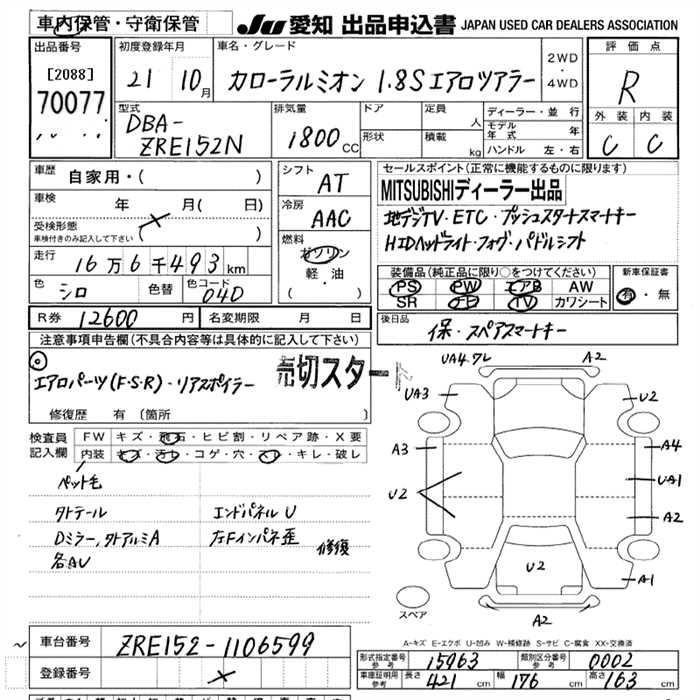 車内保管・守衛保管
JU 愛知 出品申込書 JAPAN USED CAR DEALERS ASSOCIATION
出品番号 [2088] 70077
初度登録年月 21 10月
車名・グレード カローラルミオン 1.8S エアロツアラー
2WD ・ 4WD
評価点 R
外装 内装
C C
型式 DBA-ZRE152N
排気量 1800 CC
ドア 形状
定員 人
積載 kg
ディーラー・並行
モデル年式 年
ハンドル 左・右
車歴 自家用・( )
車検 年 月( 日)
受検形態
車検付きのみ記入して下さい ( × )
走行 16万6千493km
色 シロ 色替 色コード 040
シフト AT
冷房 AAC
燃料 ガソリン
軽・油
( )
セールスポイント(正常に機能するものに限ります)
MITSUBISHIディーラー出品
地デジTV・ETC・プッシュスタートスマートキー
HIDヘッドライト・フォグ・パドルシフト
装備品(純正品に限り○をつけてください)
PS PW エアB AW
SR ナビ TV カワシート
新車保証書
有・無
R券 12600円 名変期限 月 日
後日品 保・スペアスマートキー
注意事項申告欄(不具合内容等は具体的に記入して下さい)
エアロパーツ(F・S・R)・リアスポイラー
売切スター
修復歴 有 〔箇所 〕
検査員記入欄
FW キズ・飛石・ヒビ割・リペア跡・X要
内装 キズ・汚レ・コゲ・穴・スレ・キレ・破レ
ペット毛
タトテール エンドパネルU
Dミラー,タトアルミA 左Fインパネ歪 修復
各AU
UA4.ワレ A2
UA3 U2
A3 A4
U2 UA1
A2
U2 A1
スペア A2
A-キズ E-エクボ U-凹み W-補修跡 S-サビ C-腐食 XX-交換済
車台番号 ZRE152-1106599
登録番号 ×
形式指定番号 参考 15963 類別区分番号 参考 0002
車庫証明用 参考 長さ 421cm 幅 176cm 高さ 163cm